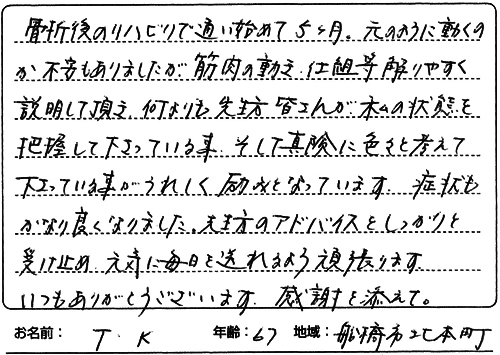 骨折後のリハビリで通い始めて5ヶ月。元のように動くの
か不安もありましたが筋肉の動き、仕組等解りやすく
説明して頂き、何よりも先生方皆さんが私の状態を
把握して下さっている事、そして真険に色々と考えて
下さっている事がうれしく励みとなっています。症状も
かなり良くなりました。先生方のアドバイスをしっかりと
受け止め、元気に毎日を送れるよう頑張ります。
いつもありがとうございます。感謝を添えて。
お名前: T.K 年齢:67 地域:船橋市二和本町